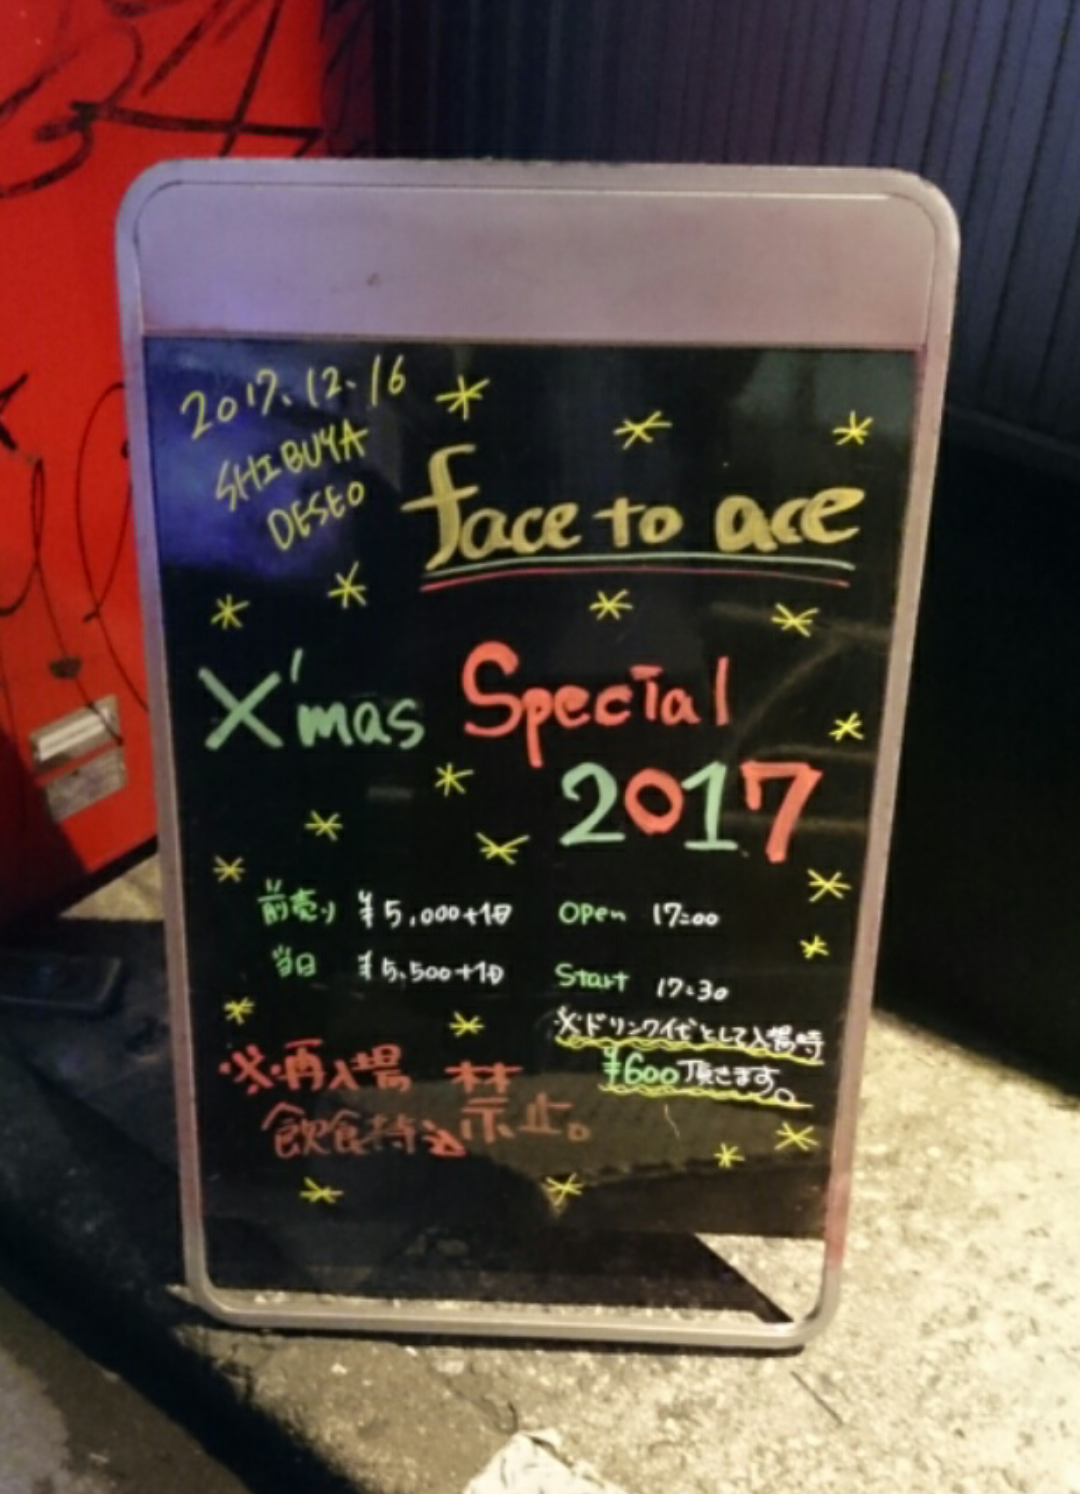 2017.12.16
SHIBUYA
DESEO
face to ace
X'mas Special
2017
前売り ¥5,000+1D
当日 ¥5,500+1D
Open 17:00
Start 17:30
※ドリンク代として入場時
¥600頂きます。
※再入場 禁止。
飲食持込